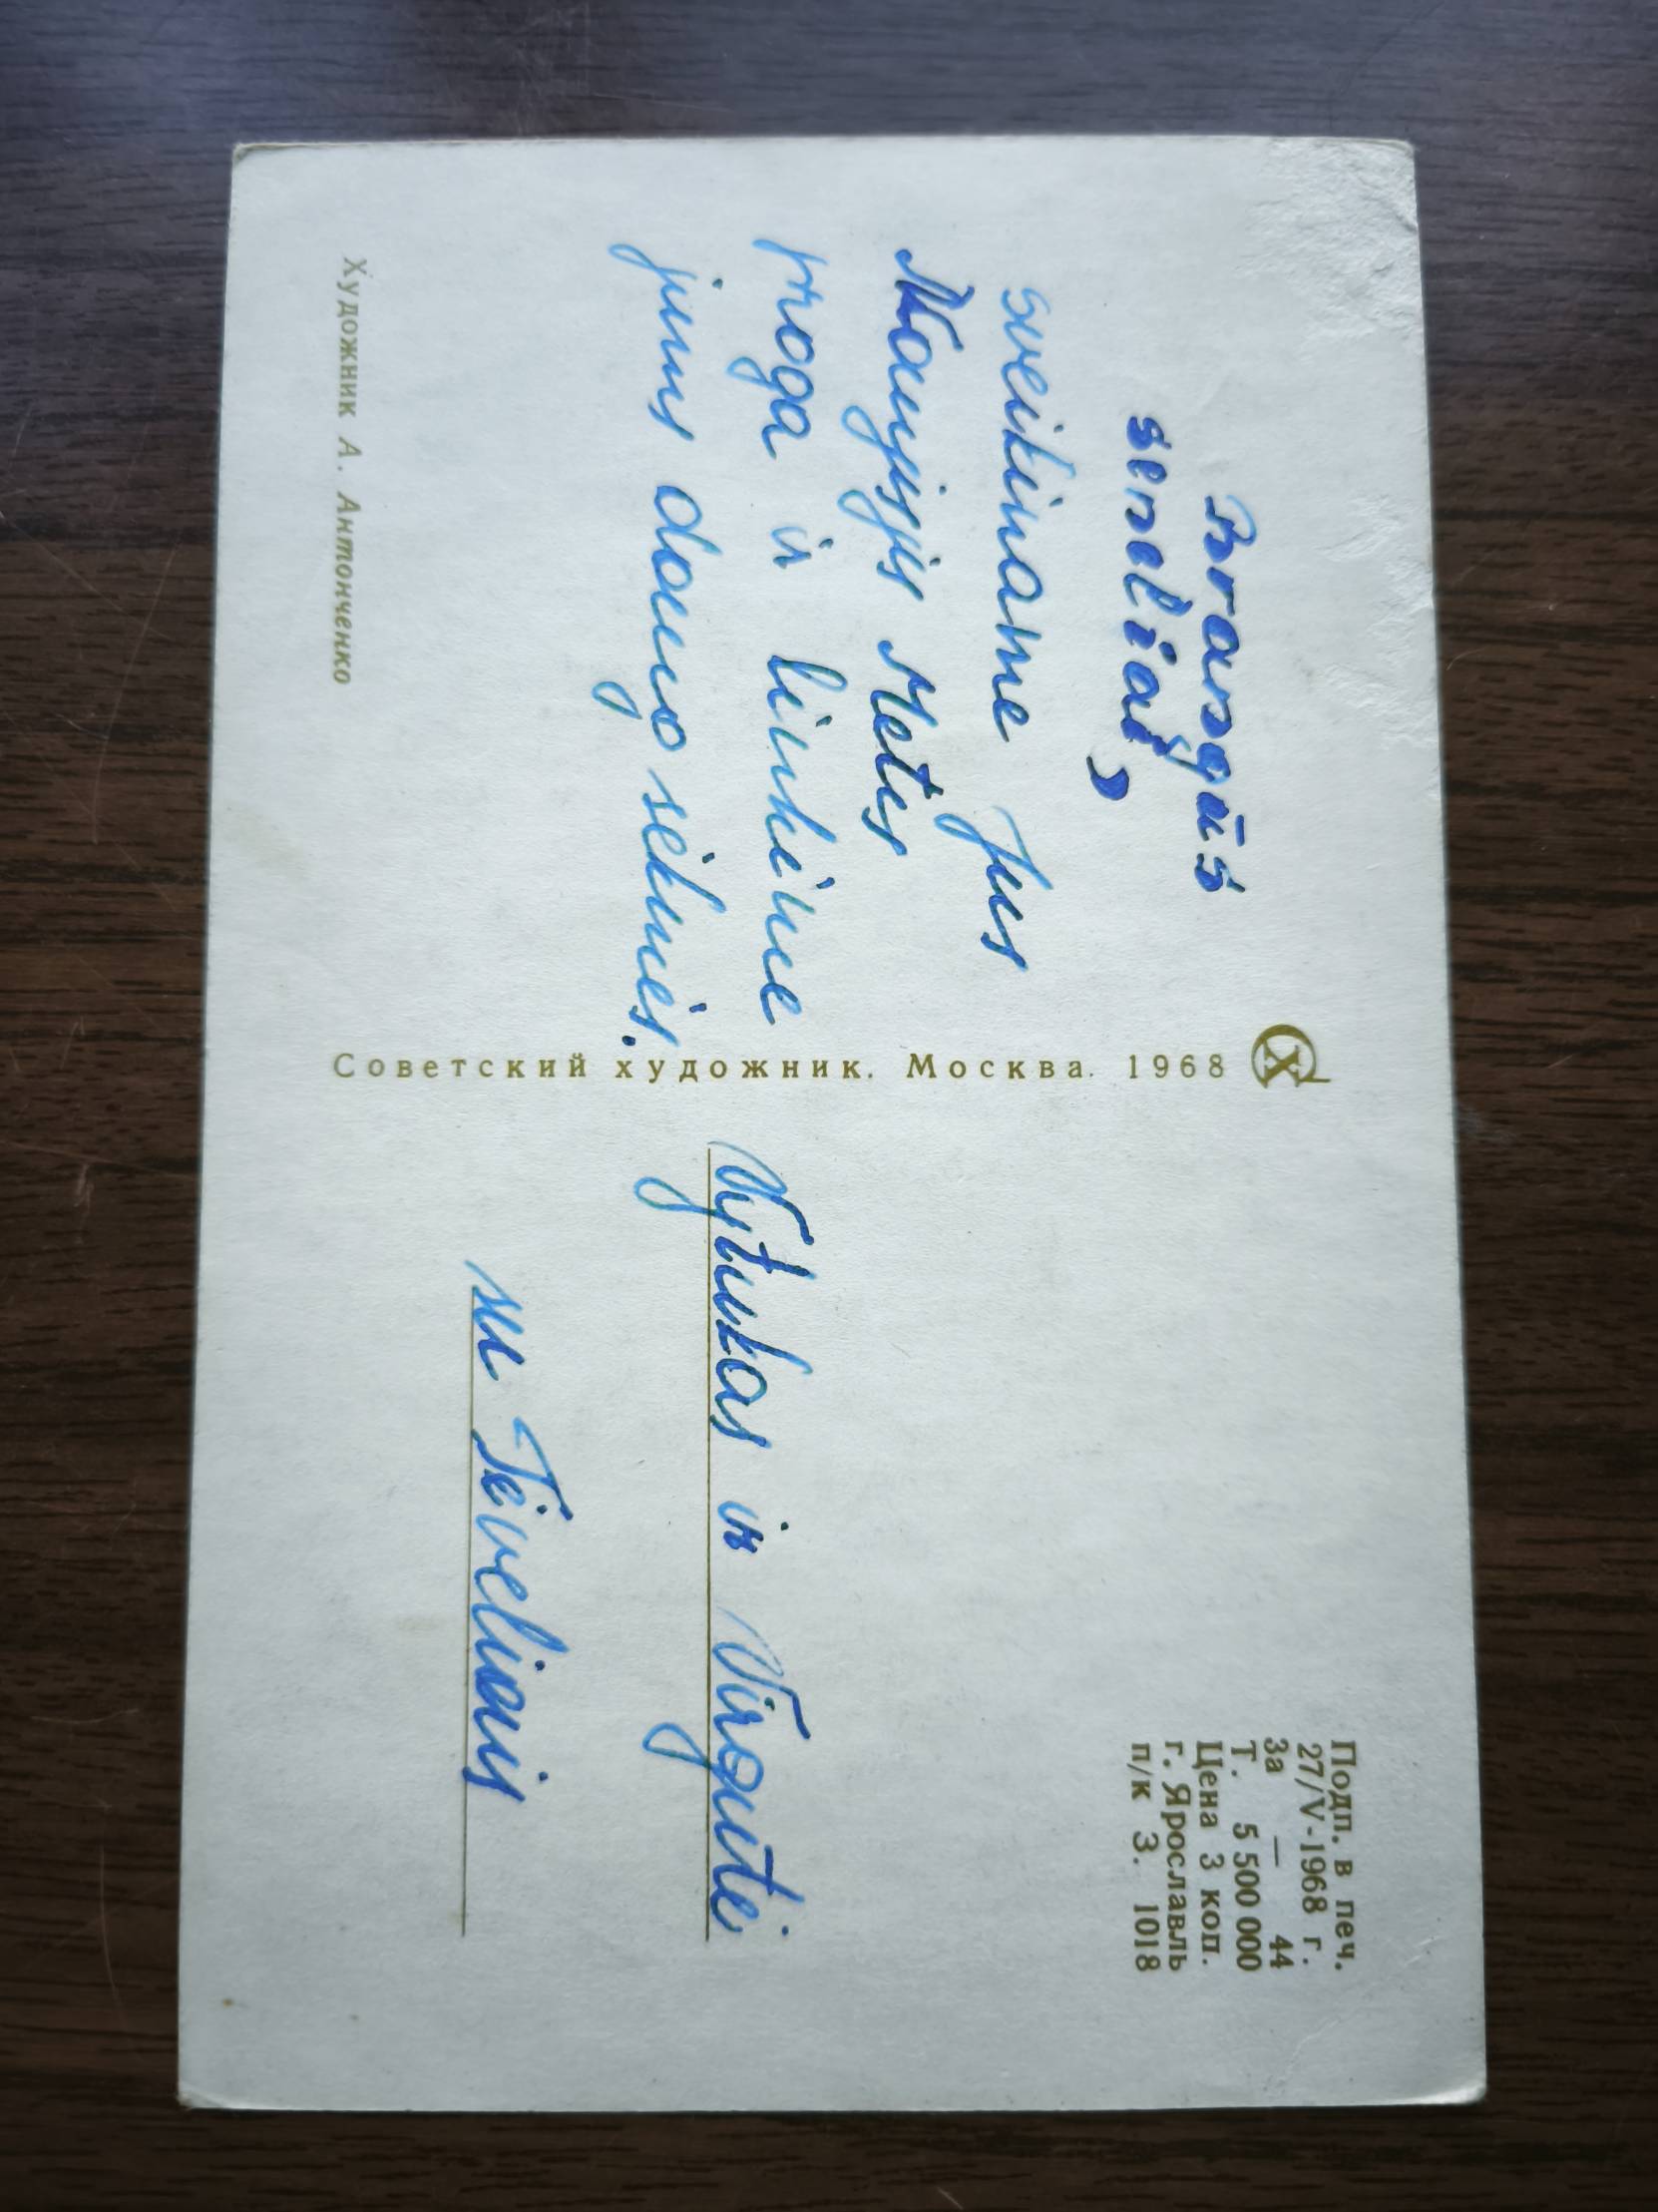 Brangūs
seneliai,
sveikiname Jus
Naujųjų Metų
proga ir linkime
jums daug sėkmės.
Художник А. Антонченко
Советский художник. Москва. 1968
Подп. в печ.
27/V-1968 г.
За — 44
Т. 5 500 000
Цена 3 коп.
г. Ярославль
п/к З. 1018
Vytukas ir Virgutė
su Tėveliais